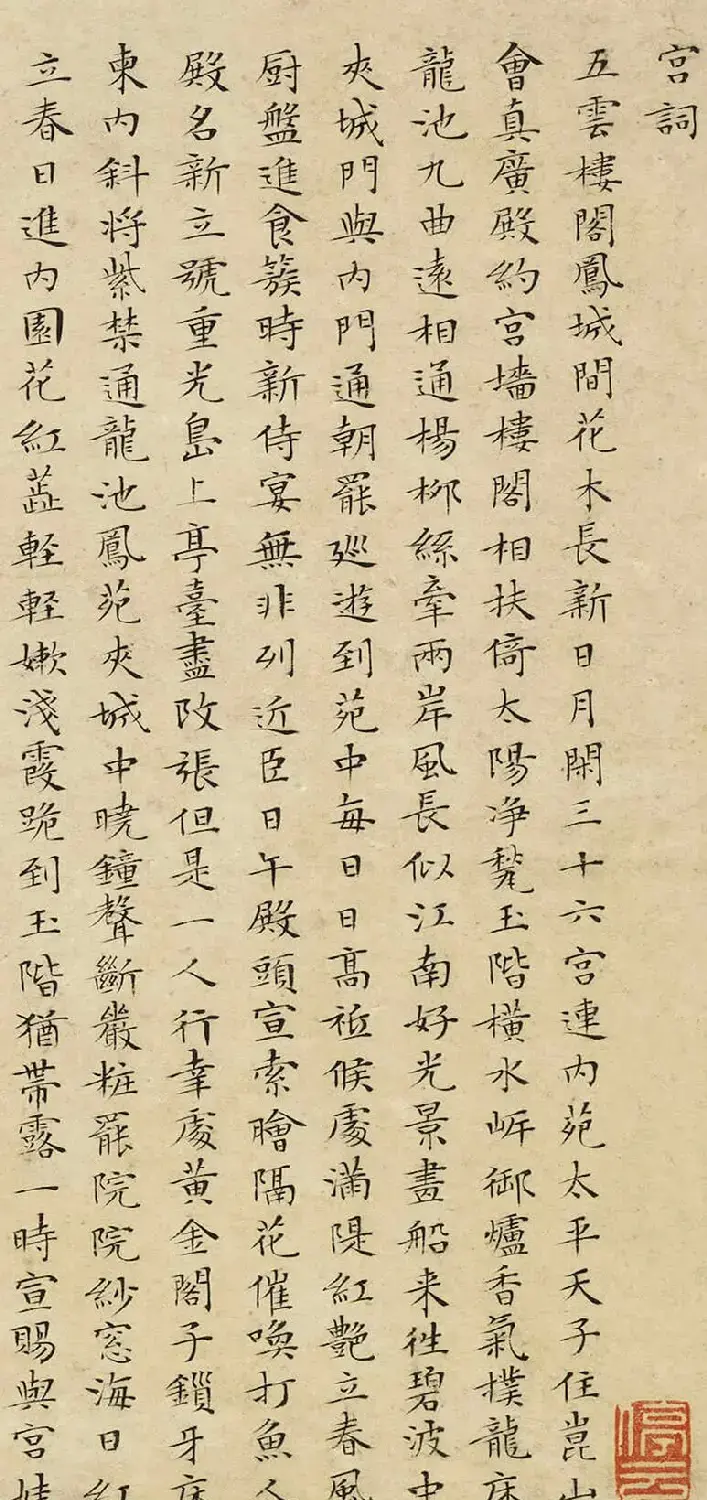 宮詞
五雲樓閣鳳城間花木長新日月閑三十六宮連內苑太平天子住崑山
會真廣殿約宮墻樓閣相扶倚太陽净甃玉階橫水岸御爐香氣撲龍床
龍池九曲遠相通楊柳絲牽兩岸風長似江南好光景畫船来往碧波中
夾城門與內門通朝罷廵遊到苑中每日日高祗候處滿隄紅艷立春風
厨盤進食簇時新侍宴無非列近臣日午殿頭宣索膾隔花催喚打魚人
殿名新立號重光島上亭臺盡改張但是一人行幸處黃金閣子鎖牙床
東內斜將紫禁通龍池鳳苑夾城中曉鐘聲斷嚴粧罷院院紗窓海日紅
立春日進內園花紅蕋軽軽嫩淺霞跪到玉階猶帶露一時宣賜與宮娃